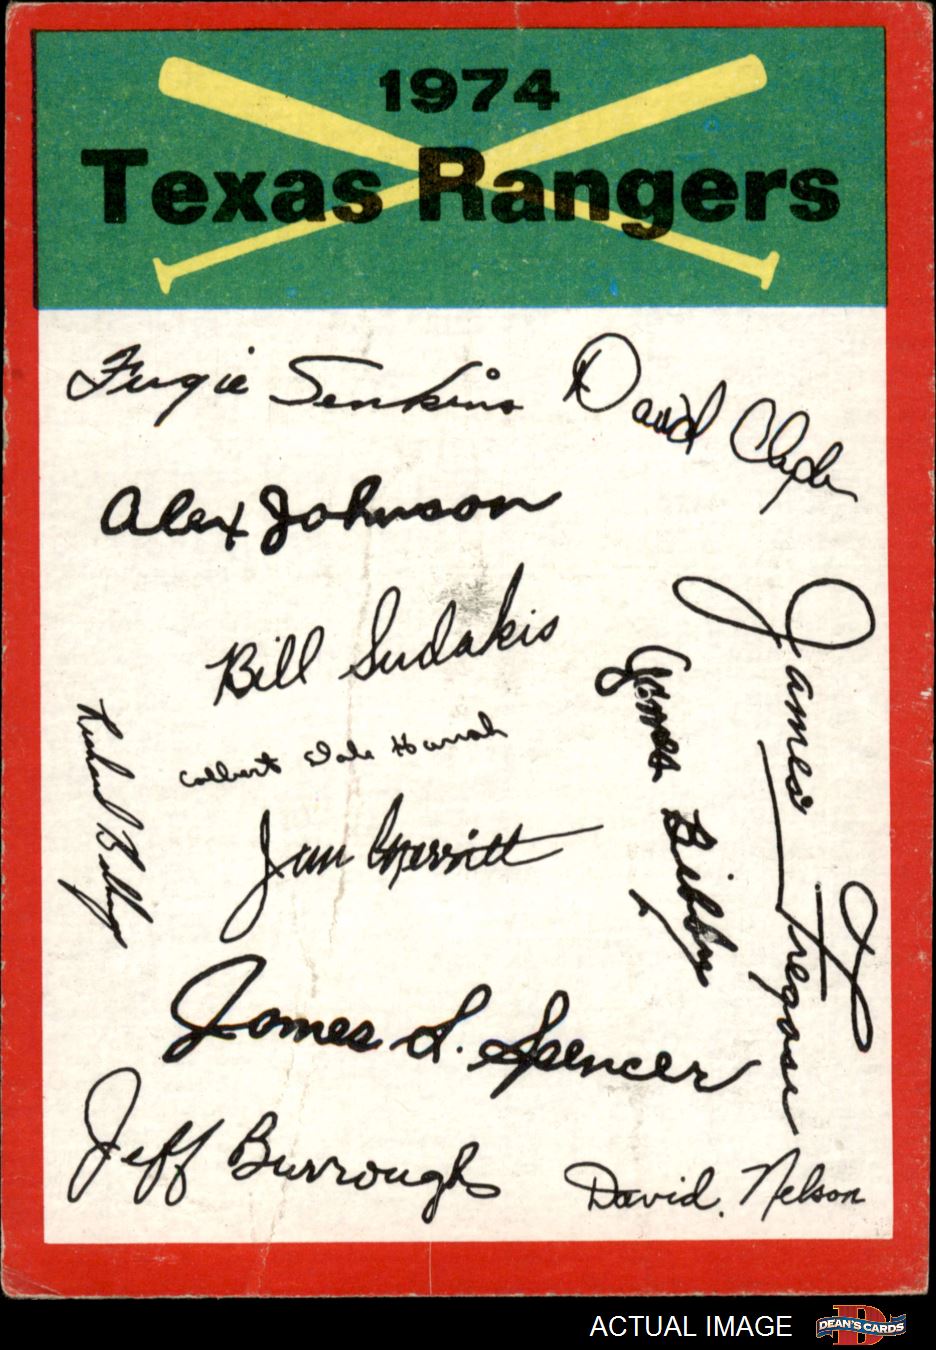 1974
Texas Rangers
Fergie Jenkins
David Clyde
Alex Johnson
Bill Sudakis
James Fregosi
James Bibby
Richard Billings
Colbert Dale Harrah
Jim Merritt
James L. Spencer
Jeff Burroughs
David. Nelson
ACTUAL IMAGE
DEAN'S CARDS